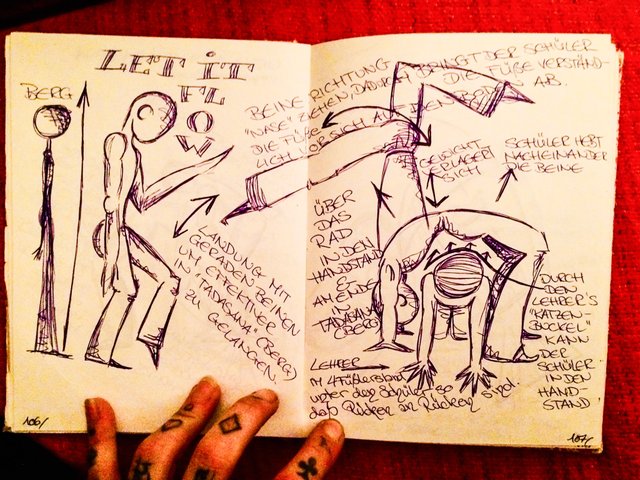 LET iT
FL
O
W
BERG
BEINE RICHTUNG
"NASE" ZIEHEN, DADURCH BRINGT DER SCHÜLER
DIE FÜßE VERSTÄND-
LICH VOR SICH AUF DEN BODEN AB.
LANDUNG MIT
GERADEN BEINEN
UM EFFEKTIVER
IN "TADASANA" (BERG)
ZU GELANGEN.
GEWICHT
VERLAGERT
SICH
SCHÜLER HEBT
NACHEINANDER
DIE BEINE
ÜBER
DAS
RAD
IN DEN
HANDSTAND
&
AM ENDE
IN
TADASANA
(BERG)
DURCH
DEN
LEHRER'S
"KATZEN-
BUCKEL"
KANN
DER
SCHÜLER
IN DEN
HAND
STAND
LEHRER
IM 4Füßlerstand
unter dem Schüler so
daß Rücken an Rücken sind.
106/
107/